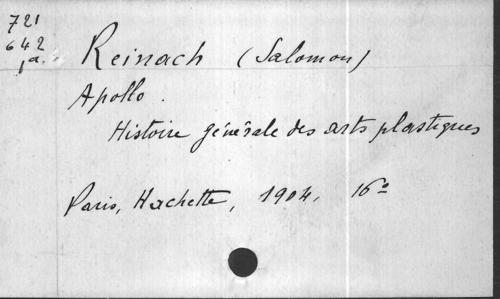 721
642
1a.
Reinach (Salomon)
Apollo.
Histoire générale des arts plastiques
Paris, Hachette, 1904, 16º